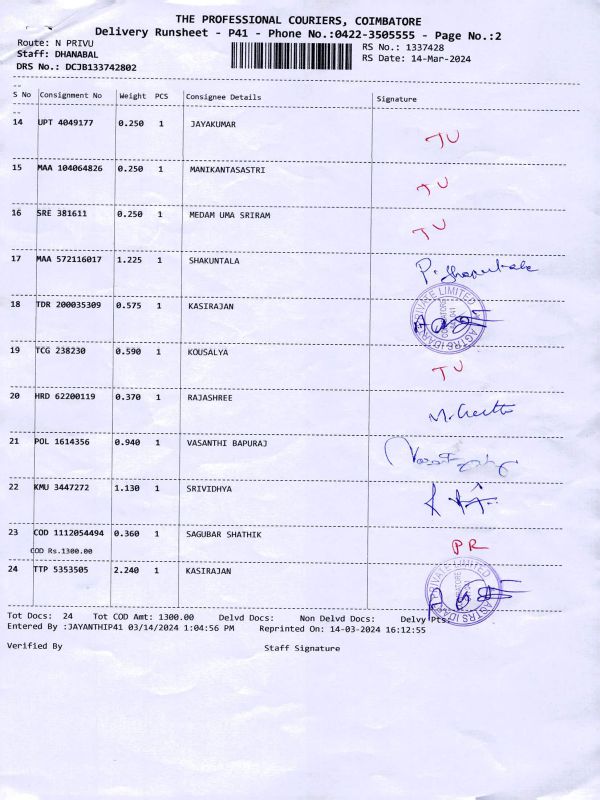 THE PROFESSIONAL COURIERS, COIMBATORE
Delivery Runsheet - P41 - Phone No.:0422-3505555 - Page No.:2
Route: N PRIVU RS No.: 1337428
Staff: DHANABAL RS Date: 14-Mar-2024
DRS No.: DCJB133742802
S No Consignment No Weight PCS Consignee Details Signature
14 UPT 4049177 0.250 1 JAYAKUMAR TU
15 MAA 104064826 0.250 1 MANIKANTASASTRI TU
16 SRE 381611 0.250 1 MEDAM UMA SRIRAM TU
17 MAA 572116017 1.225 1 SHAKUNTALA P. Shakuntala
18 TDR 200035309 0.575 1 KASIRAJAN
19 TCG 238230 0.590 1 KOUSALYA TU
20 HRD 62200119 0.370 1 RAJASHREE
21 POL 1614356 0.940 1 VASANTHI BAPURAJ
22 KMU 3447272 1.130 1 SRIVIDHYA
23 COD 1112054494 0.360 1 SAGUBAR SHATHIK PR
COD Rs.1300.00
24 TTP 5353505 2.240 1 KASIRAJAN
Tot Docs: 24 Tot COD Amt: 1300.00 Delvd Docs: Non Delvd Docs: Delvy Pts:
Entered By :JAYANTHIP41 03/14/2024 1:04:56 PM Reprinted On: 14-03-2024 16:12:55
Verified By Staff Signature